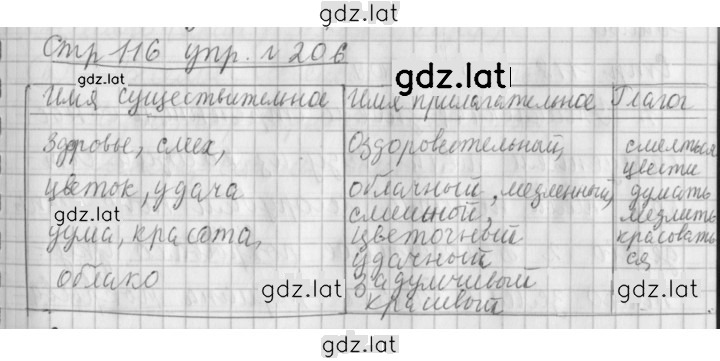 gdz.lat
Стр 116 упр. № 206
gdz.lat
gdz.lat
Имя существительное Имя прилагательное Глагол
Здоровье, смех, Оздоровительный, смеяться
цвести
цветок, удача облачный, медленный, думать
gdz.lat смешной, медлить
дума, красота, цветочный красовать
удачный ся
облако задумчивый
gdz.lat gdz.lat
красивый
gdz.lat